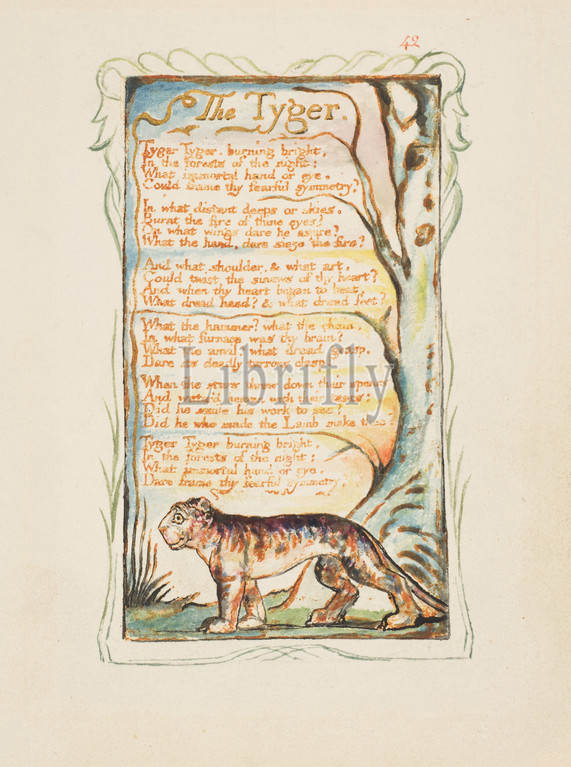 42
The Tyger.
Tyger Tyger, burning bright,
In the forests of the night:
What immortal hand or eye,
Could frame thy fearful symmetry?
In what distant deeps or skies,
Burnt the fire of thine eyes?
On what wings dare he aspire?
What the hand, dare sieze the fire?
And what shoulder, & what art,
Could twist the sinews of thy heart?
And when thy heart began to beat,
What dread hand? & what dread feet?
What the hammer? what the chain,
In what furnace was thy brain?
What the anvil? what dread grasp,
Dare its deadly terrors clasp!
When the stars threw down their spears
And water'd heaven with their tears:
Did he smile his work to see?
Did he who made the Lamb make thee?
Tyger Tyger burning bright,
In the forests of the night:
What immortal hand or eye,
Dare frame thy fearful symmetry?
Librifly